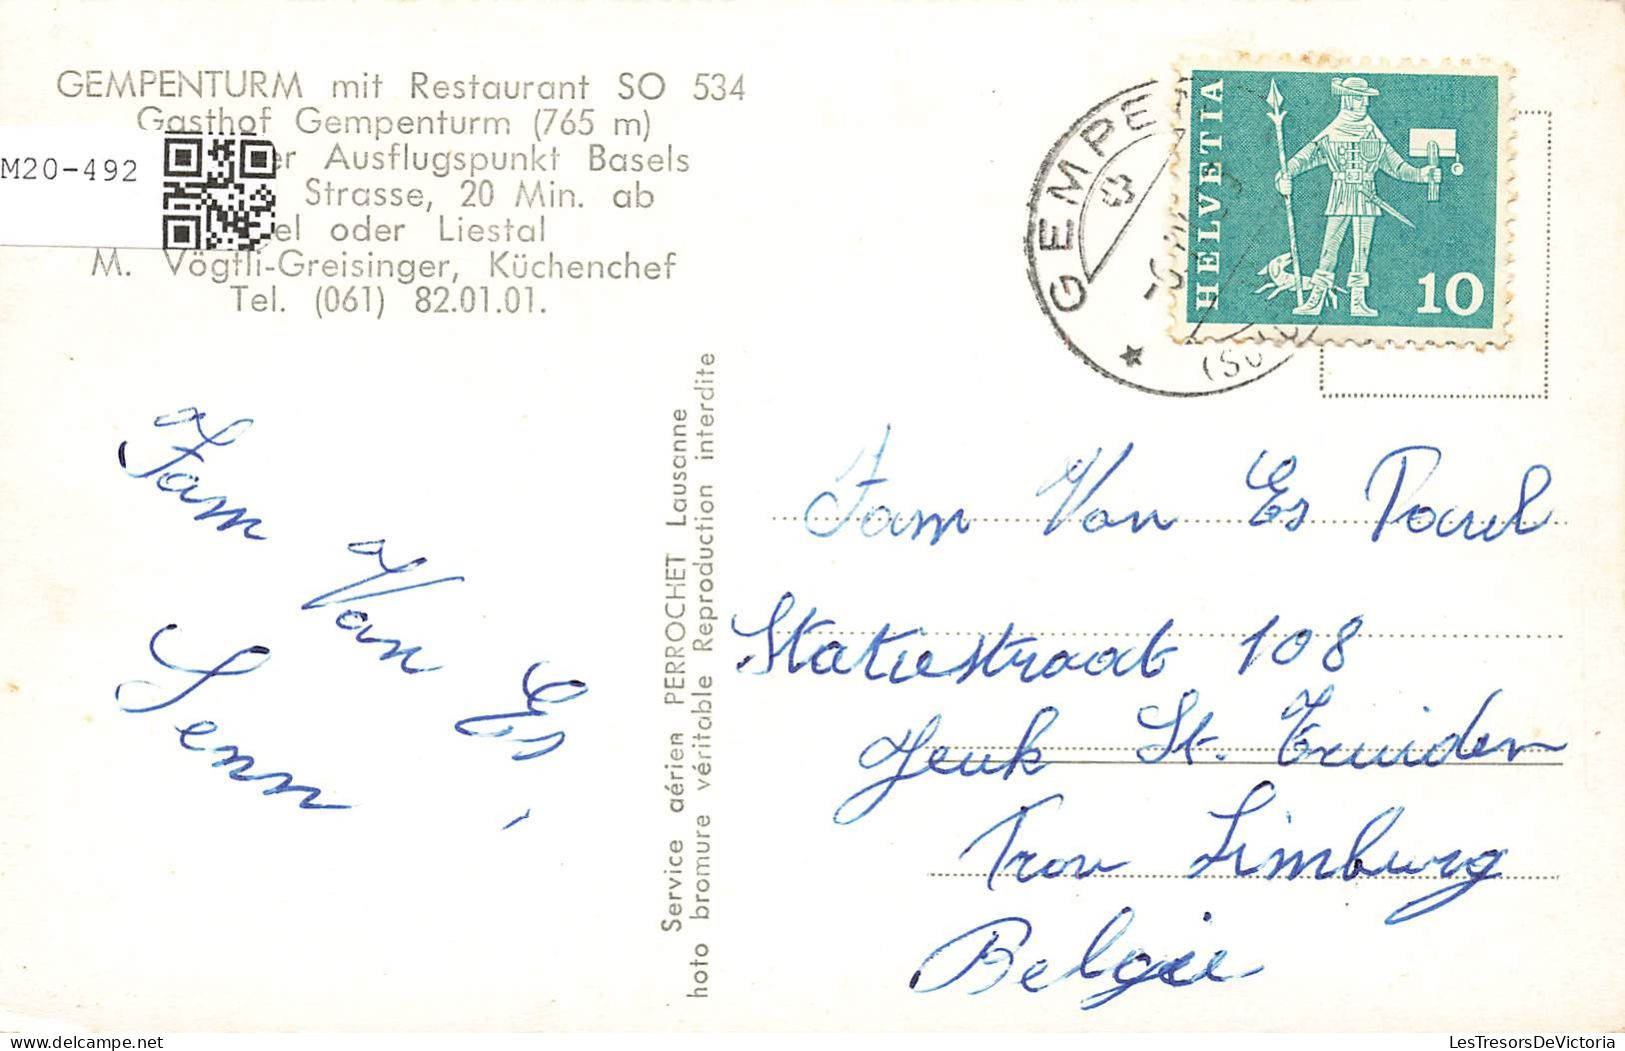 GEMPENTURM mit Restaurant SO 534
Gasthof Gempenturm (765 m)
M20-492
Ausflugspunkt Basels
Strasse, 20 Min. ab
oder Liestal
M. Vögtli-Greisinger, Küchenchef
Tel. (061) 82.01.01.
HELVETIA
10
GEMPEN
Fam
Van
Es
Senn
Service aérien PERROCHET Lausanne
hoto bromure véritable Reproduction interdite
Fam Van Es Paul
Statiestraat 108
Jeuk St. Truiden
Prov Limburg
Belgie
delcampe.net
LesTresorsDeVictoria